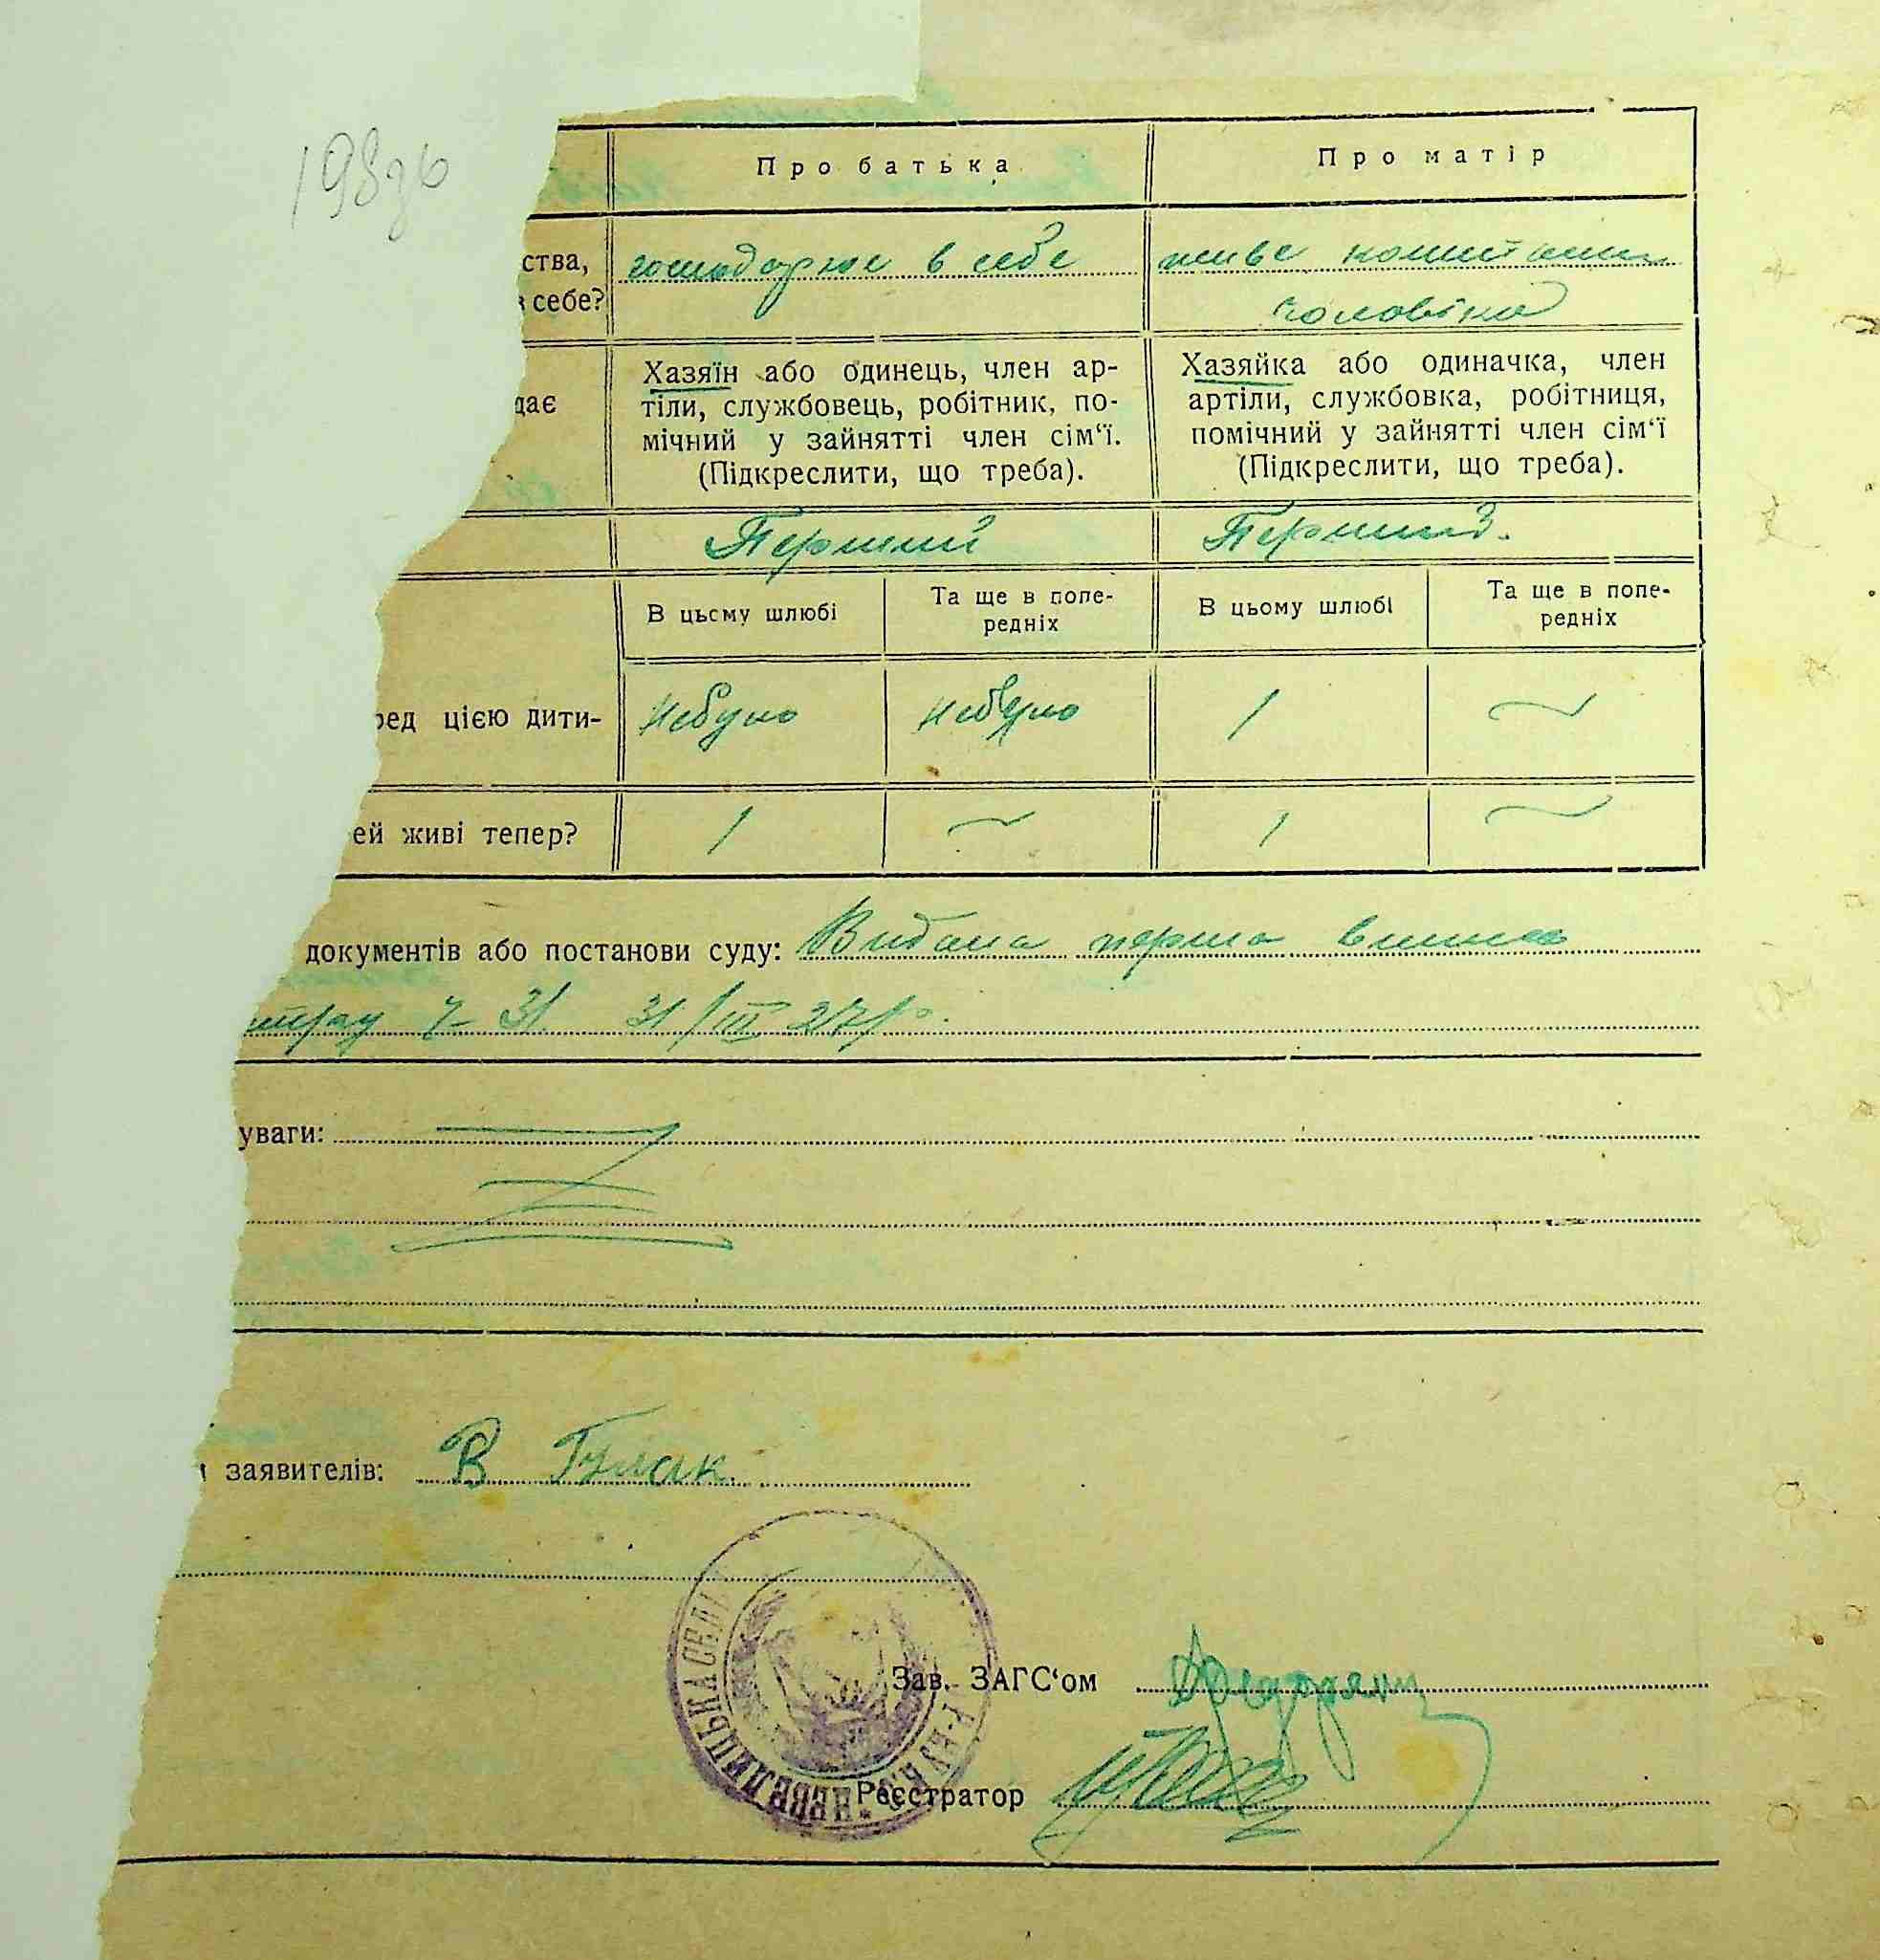 198зв
Про батька
Про матір
ства,
в себе?
господарює в себе
живе коштами
чоловіка
дає
Хазяїн або одинець, член ар-
тіли, службовець, робітник, по-
мічний у зайнятті член сім‘ї.
(Підкреслити, що треба).
Хазяйка або одиначка, член
артіли, службовка, робітниця,
помічний у зайнятті член сім‘ї
(Підкреслити, що треба).
Перший
Перший.
В цьому шлюбі
Та ще в попе-
редніх
В цьому шлюбі
Та ще в попе-
редніх
ред цією дити-
небуло
небуло
1
ей живі тепер?
1
1
документів або постанови суду: Видана перша
ч 31 31/III 27 р.
уваги:
заявителів: В Гулак.
Зав. ЗАГС‘ом
Реєстратор